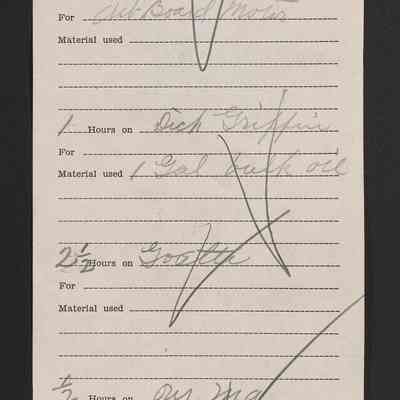 For Out Board Motor
Material used
1 Hours on Dick Griffin
For
Material used 1 Gal back oil
2 1/2 Hours on
For
Material used
1/2 Hours on